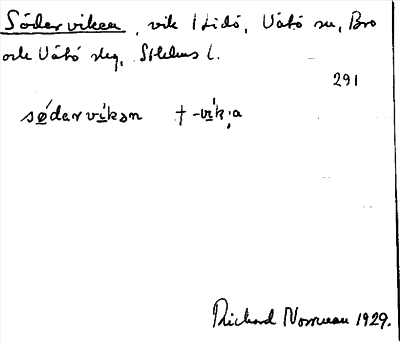 Söderviken, vik i Lidö, Vätö sn, Bro
och Vätö skg, Sthlms l.
291
sǿdərvíkən † -vík;a
Richard Norman 1929.